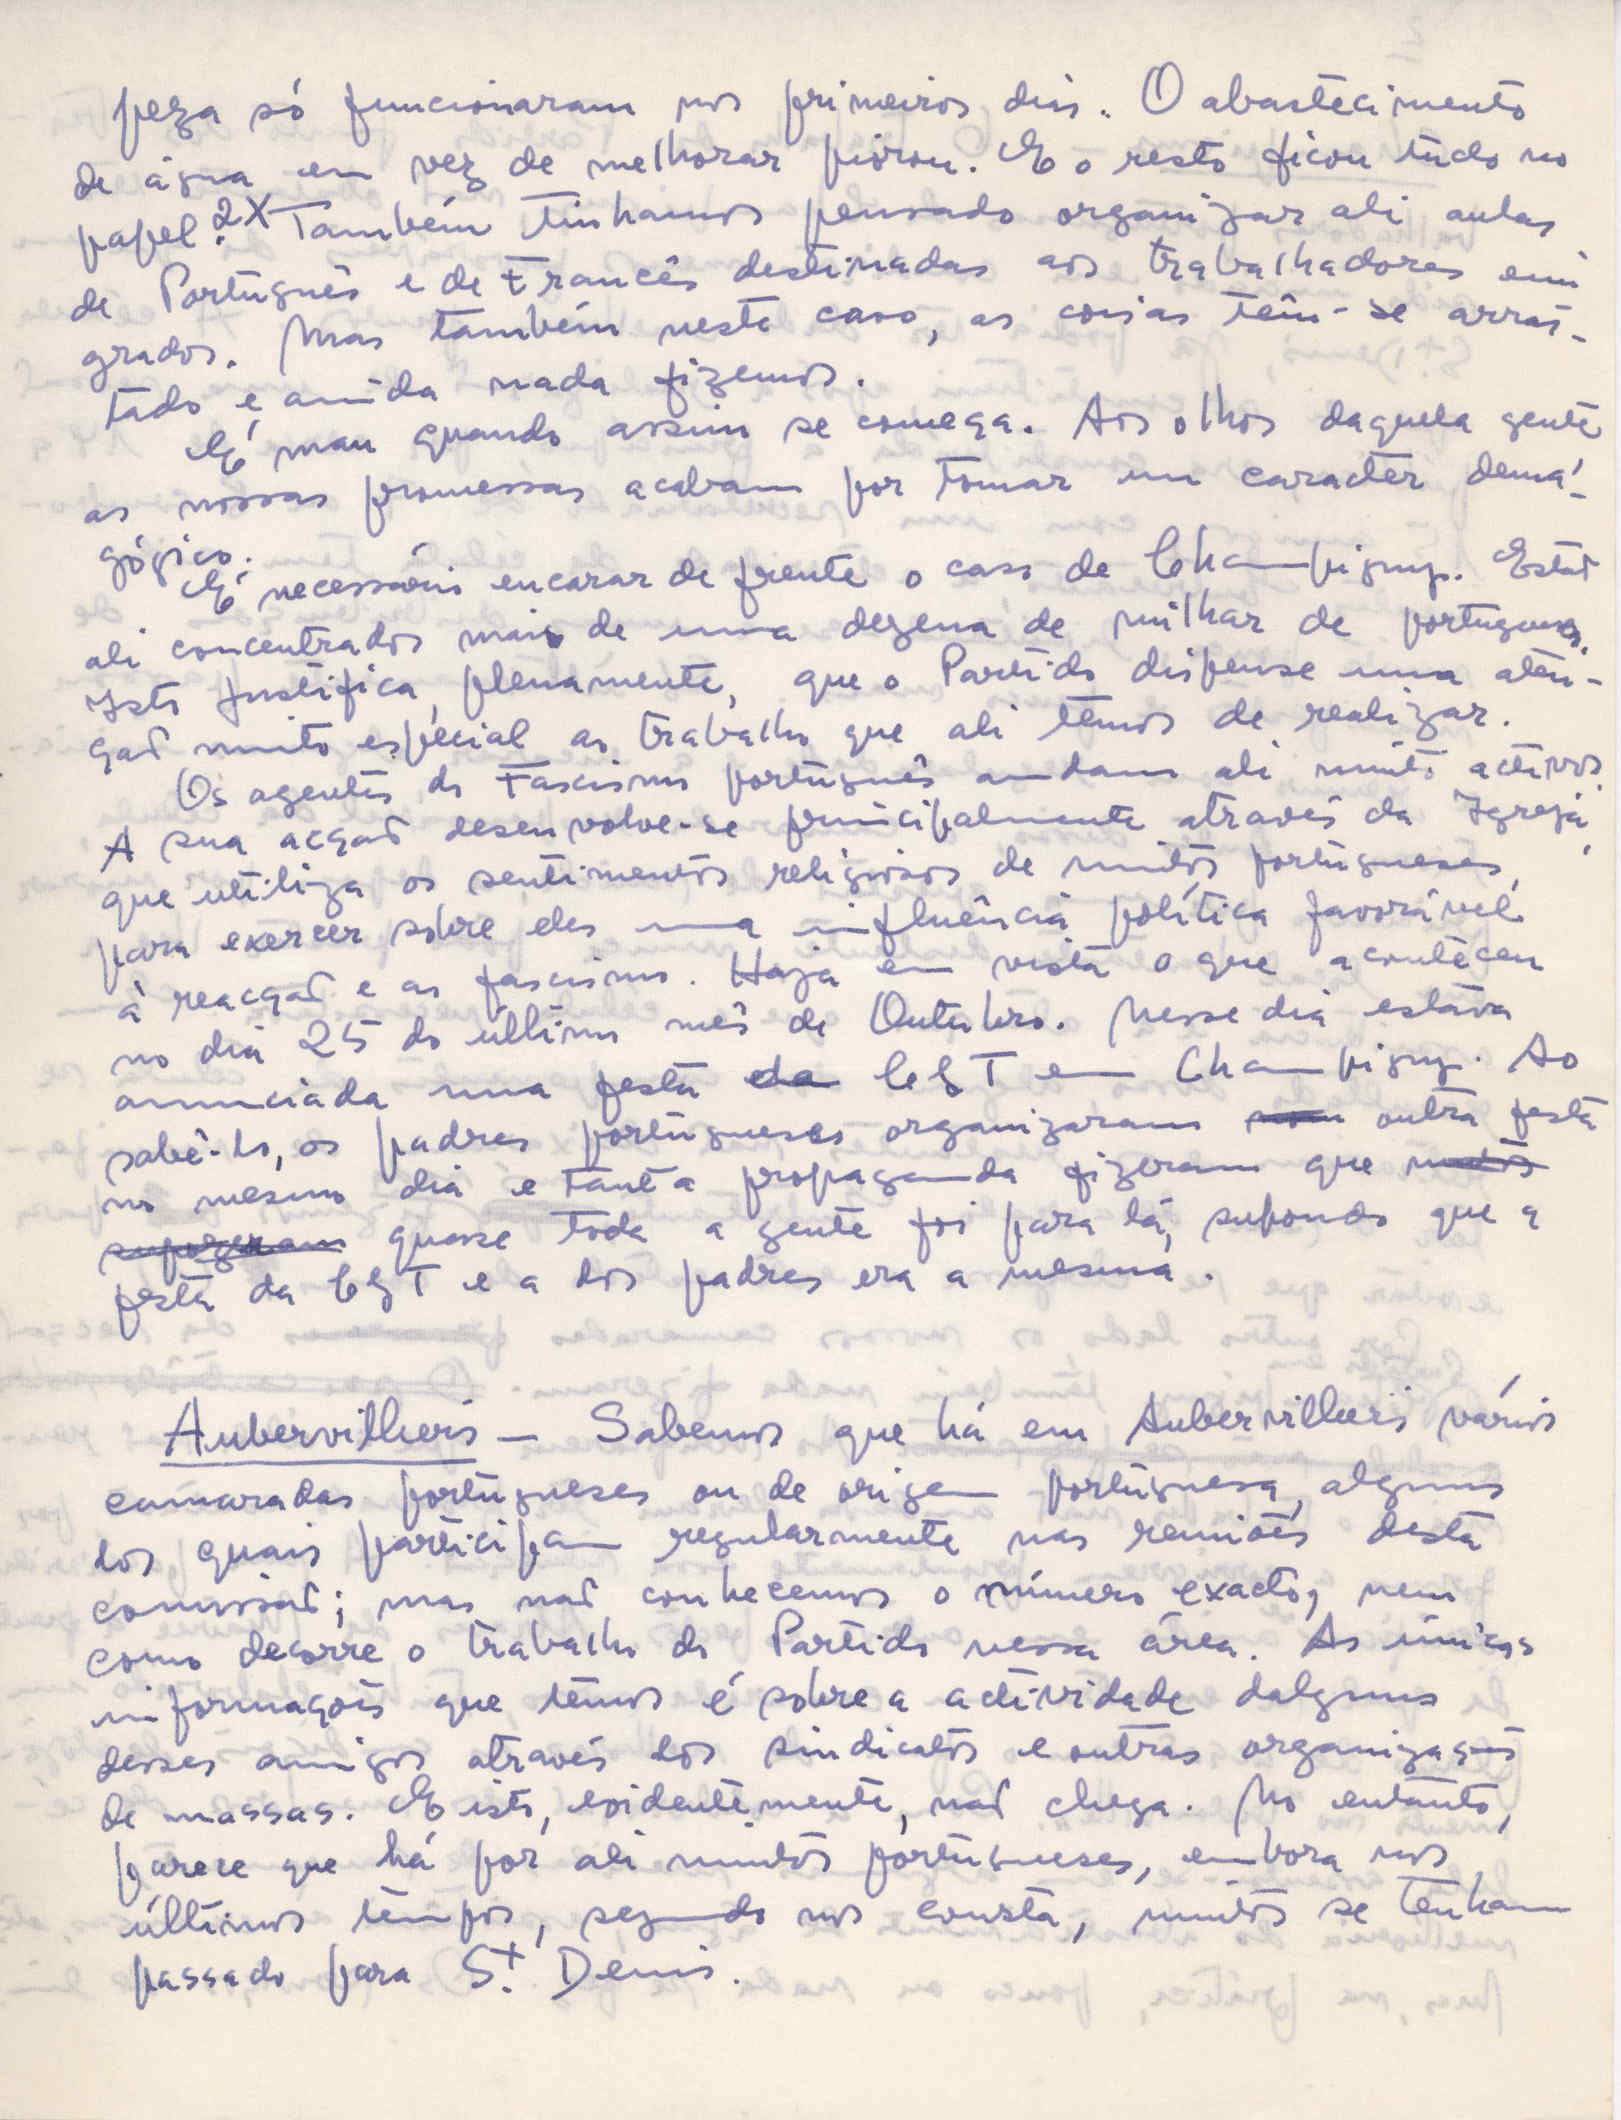 peza só funcionaram nos primeiros dias. O abastecimento
de água em vez de melhorar piorou. E o resto ficou tudo no
papel. 2X Também tinhamos pensado organizar ali aulas
de Português e de Francês destinadas aos trabalhadores emi
grados. Mas também neste caso, as coisas têm-se arras-
tado e ainda nada fizemos.
É mau quando assim se começa. Aos olhos daquela gente
as nossas promessas acabam por tomar um caracter demá-
gógico.
É necessário encarar de frente o caso de Champigny. Estão
ali concentrados mais de uma dezena de milhar de portugueses.
Isto justifica, plenamente, que o Partido dispense uma aten-
ção muito especial ao trabalho que ali temos de realizar.
Os agentes do Fascismo português andam ali muito activos.
A sua acção desenvolve-se principalmente através da Igreja,
que utiliza os sentimentos religiosos de muitos portugueses,
para exercer sobre eles uma influência política favorável
à reacção e ao fascismo. Haja em vista o que aconteceu
no dia 25 do último mês de Outubro. Nesse dia estava
anunciada uma festa da CGT em Champigny. Ao
sabê-lo, os padres portugueses organizaram outra festa
no mesmo dia e tanta propaganda fizeram que muitos
supozeram quase toda a gente foi para lá, supondo que a
festa da CGT e a dos padres era a mesma.
Aubervilliers — Sabemos que há em Aubervilliers vários
camaradas portugueses ou de origem portuguesa, alguns
dos quais participam regularmente nas reuniões desta
comissão; mas não conhecemos o número exacto, nem
como decorre o trabalho do Partido nessa área. As únicas
informações que temos é sobre a actividade dalguns
desses amigos através dos sindicatos e outras organizações
de massas. E isto, evidentemente, não chega. No entanto,
parece que há por ali muitos portugueses, embora nos
últimos tempos, segundo nos consta, muitos se tenham
passado para St. Denis.